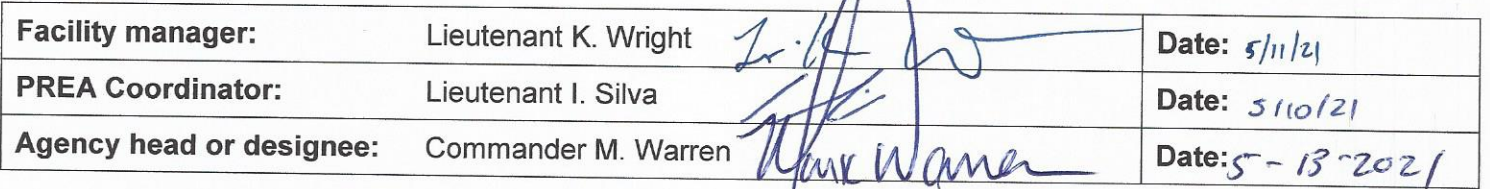 Facility manager: Lieutenant K. Wright Date: 5/11/21
PREA Coordinator: Lieutenant I. Silva Date: 5/10/21
Agency head or designee: Commander M. Warren Mark Warren Date: 5-13-2021